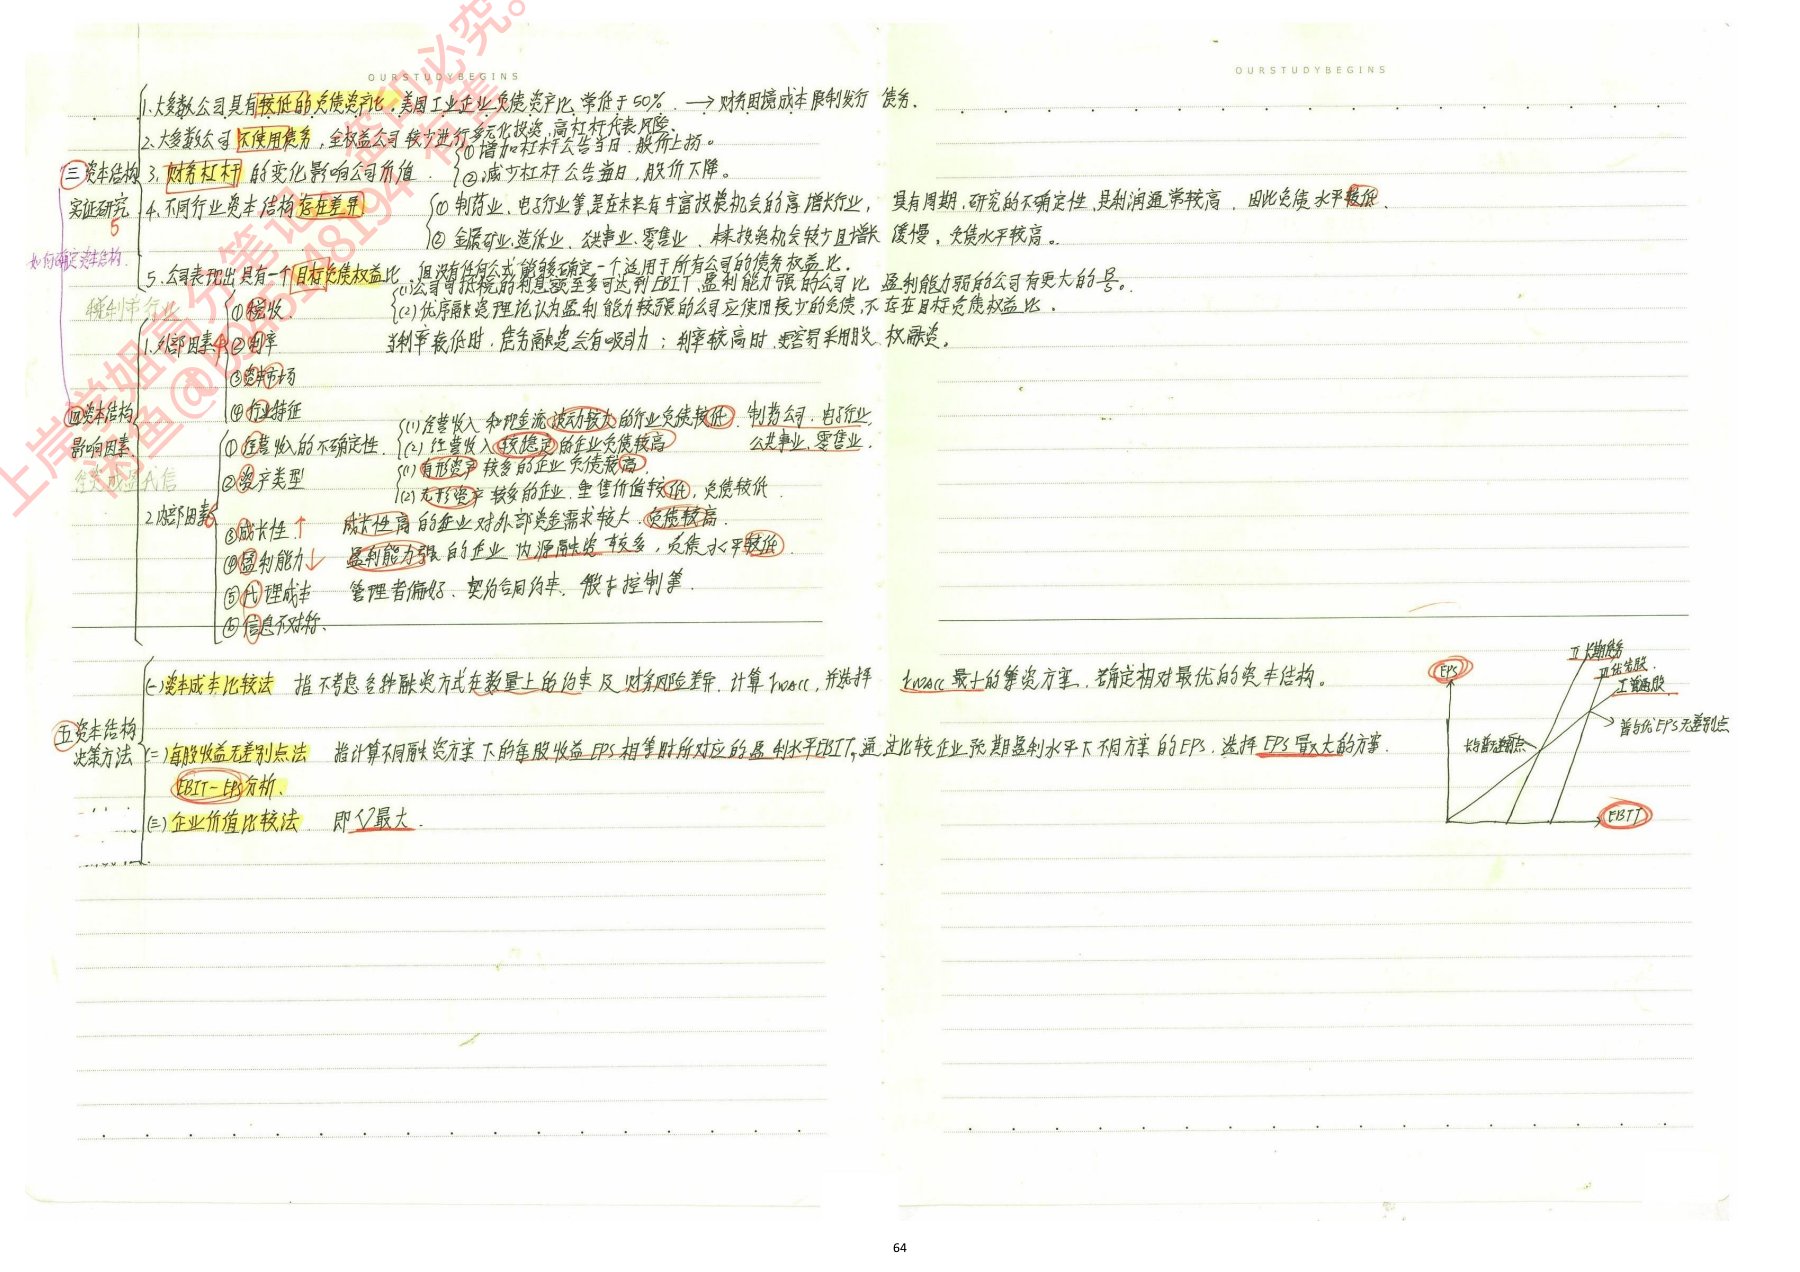 OURSTUDYBEGINS
OURSTUDYBEGINS
三 资本结构实证研究 5
1.大多数公司具有较低的负债资产比,美国工业企业负债资产比常低于50%. → 财务困境成本限制发行债务.
2.大多数公司不使用债务,全权益公司较少进行多元化投资,高杠杆代表风险.
3.财务杠杆的变化影响公司价值.
①增加杠杆公告当日,股价上扬。
②减少杠杆公告当日,股价下降。
4.不同行业资本结构存在差异
①制药业、电子行业等是在未来有丰富投资机会的高增长行业,具有周期、研究的不确定性,且利润通常较高,因此负债水平较低.
②金属矿业、造纸业、公共事业、零售业,未来投资机会较少且增长缓慢,负债水平较高。
5.公司表现出具有一个目标负债权益比,但没有任何公式能够确定一个适用于所有公司的债务权益比.
如何确定资本结构.
四 资本结构影响因素.
税利市行业
1.外部因素4
①税收
(1)公司可抵税的利息额至多可达到EBIT,盈利能力强的公司比盈利能力弱的公司有更大的B/S。
(2)优序融资理论认为盈利能力较强的公司应使用较少的负债,不存在目标负债权益比.
②利率
当利率较低时,债务融资会有吸引力;利率较高时,更容易采用股权融资。
③资本市场
④行业特征
2.内部因素6
①经营收入的不确定性.
(1)经营收入和现金流波动较大的行业负债较低. 制药公司、电子行业,
(2)经营收入较稳定的企业负债较高 公共事业、零售业,
②资产类型
(1)有形资产较多的企业负债较高.
(2)无形资产较多的企业,重售价值较低,负债较低.
③成长性↑ 成长性高的企业对外部资金需求较大,负债较高.
④盈利能力↓ 盈利能力强的企业内源融资较多,负债水平较低.
⑤代理成本 管理者偏好、契约合同约束、股东控制等.
⑥信息不对称.
五 资本结构决策方法
(一)资本成本比较法 指不考虑各种融资方式在数量上的约束及财务风险差异,计算rWACC,并选择rWACC最小的筹资方案,确定相对最优的资本结构。
(二)每股收益无差别点法 指计算不同融资方案下的每股收益EPS相等时所对应的盈利水平EBIT,通过比较企业预期盈利水平下不同方案的EPS,选择EPS最大的方案.
EBIT-EPS分析.
(三)企业价值比较法 即V最大.
EPS
Ⅱ长期债务
Ⅲ优先股.
Ⅰ普通股
普与优EPS无差别点
EBIT
上岸学姐高分笔记
64